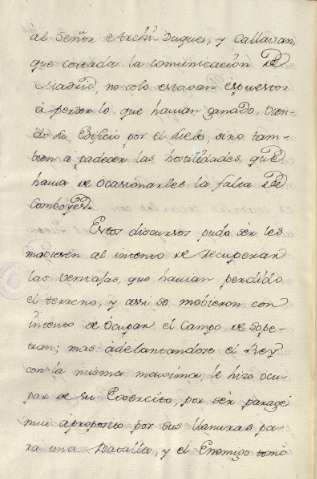 al Señor Archi Duque, y Callavan,
que cortada la comunicación de
Madrid, no solo estavan expuestos
à perder lo que havian ganado,
de Edificio por el Cielo, sino tam-
bien a padecer las hostilidades, que
havia de ocasionarles la falta de
Comboyes.
Estos discursos pudo ser les
moviesen al intento de recuperar
las ventajas, que havian perdido
el terreno, y assi se movieron con
intento de ocupar el Campo de
mas adelantandose el Rey
con la misma maxima, le hizo ocu-
par de su Exercito, por ser parage
mui aproposito por sus llanuras pa-
ra una Batalla, y el Enemigo tomò